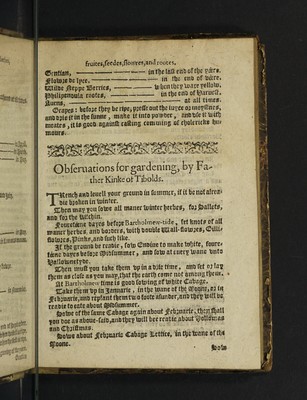 fruites, seedes, flowres, and rootes,
Gentian, in the last end of the yéere.
Flowre de lyce, in the end of yéere.
Wilde Neppe Berries, when they ware yellow.
Philipendula rootes, in the end of haruest.
Acorns, at all times.
Grapes: before they be ripe, presse out the iuyce or
and drie it in the sunne, make it into powder, and vse it with
meates, it is good against casting comming of cholericke hu-
mours.
Obseruations for gardening, by Fa-
ther Kinke of Tibolds.
TRench and leuell your ground in summer, if it be not alrea-
die broken in winter.
Then may you sowe all maner winter herbes, for Sallets,
and for the kitchin.
Fourtéene dayes before Bartholmew-tide, set knots of all
maner herbes, and borders, with double Wall-flowres, Gilli-
flowres, Pinkes, and such like.
If the ground be readie, sow Endiue to make white, fouré-
téene dayes before Midsummer, and sow at euery wane vnto
Hallowmtyde.
Then must you take them vp in a drie time, and set or lay
them as close as you may, that the earth come not among them.
At Bartholmew time is good sowing of white Cabage.
Take them vp in Januarie, in the wane of the Moone, or in
Februarie, and replant them two foote asunder, and they will be
readie to eate about Midsummer.
Sowe of the same Cabage again about Februarie, then shall
you doe as aboue-said, and they will bee readie about Hollomas
and Christmas.
Sowe about Februarie Cabage Lettice, in the wane of the
Moone.
Sow